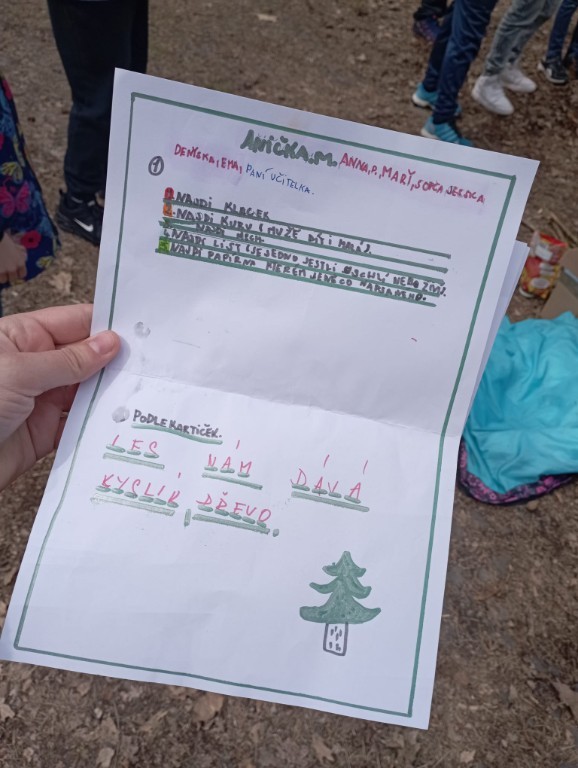 ANIČKA.M. ANNA.P. MARÝ, SOPČA JESSICA
DENISKA, EMA, PANÍ UČITELKA.
1
1. NAJDI KLACEK
2. NAJDI KURU (MUŽE BÍT I MALÁ).
3. NAJDI MECH.
4. NAJDI LIST (JE JEDNO JESTLI NEBO ŽIVÍ.
5. NAJDI PAPÍR NA JE NĚCO NAPSANÉHO.
PODLE KARTIČEK.
LES NÁM DÁVÁ
KYSLÍK, DŘEVO.